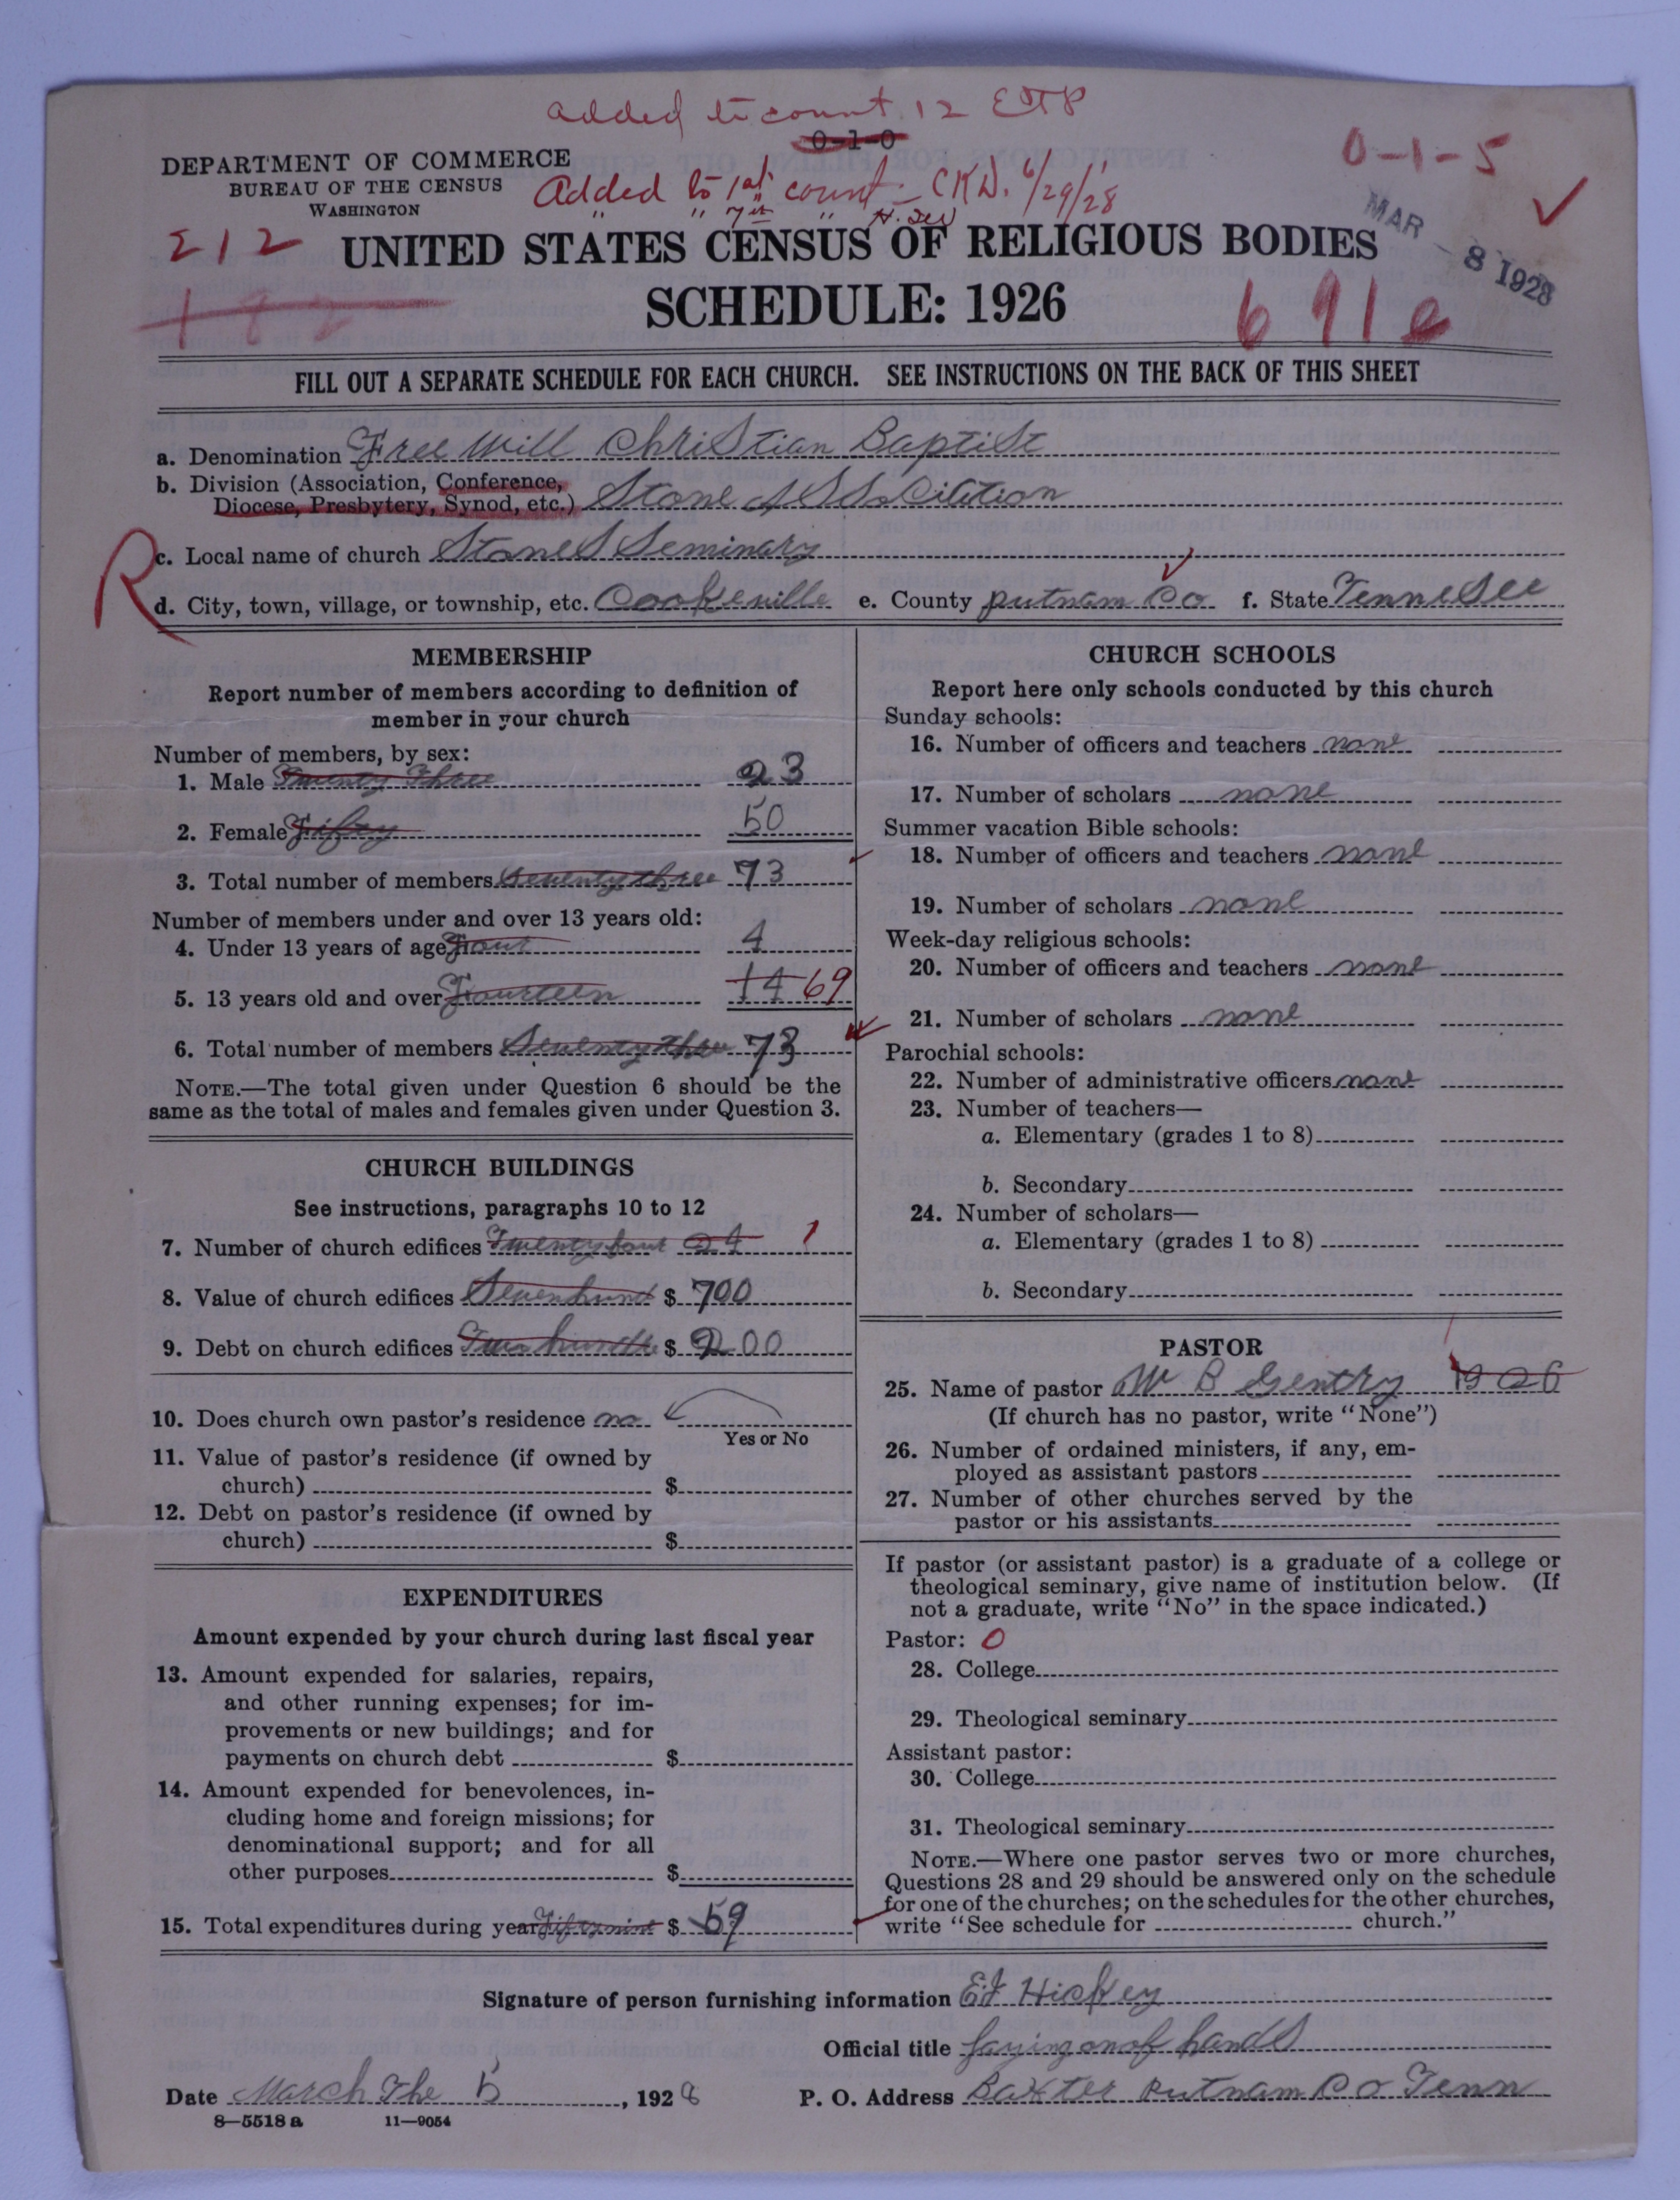 added to count 12 ETP
0-1-0
0-1-5
DEPARTMENT OF COMMERCE
BUREAU OF THE CENSUS
WASHINGTON
Added to 1st count - CKD. 6/29/28
" " 7th "
MAR - 8 1928
212
UNITED STATES CENSUS OF RELIGIOUS BODIES
182
SCHEDULE: 1926
691e
FILL OUT A SEPARATE SCHEDULE FOR EACH CHURCH. SEE INSTRUCTIONS ON THE BACK OF THIS SHEET
a. Denomination Free Will Christian Baptist
b. Division (Association, Conference,
Diocese, Presbytery, Synod, etc.) Stone Assocition
R
c. Local name of church Stones Seminary
d. City, town, village, or township, etc. Cookeville e. County putnam Co f. State Tennesee
MEMBERSHIP
Report number of members according to definition of
member in your church
Number of members, by sex:
1. Male Twenty Three 23
2. Female Fifty 50
3. Total number of members Seventy three 73
Number of members under and over 13 years old:
4. Under 13 years of age Four 4
5. 13 years old and over Fourteen 14 69
6. Total number of members Seventy three 73
NOTE.—The total given under Question 6 should be the
same as the total of males and females given under Question 3.
CHURCH BUILDINGS
See instructions, paragraphs 10 to 12
7. Number of church edifices Twenty four 24 1
8. Value of church edifices Seven hund $ 700
9. Debt on church edifices Two hundred $ 200
10. Does church own pastor's residence no
Yes or No
11. Value of pastor's residence (if owned by
church) $
12. Debt on pastor's residence (if owned by
church) $
EXPENDITURES
Amount expended by your church during last fiscal year
13. Amount expended for salaries, repairs,
and other running expenses; for im-
provements or new buildings; and for
payments on church debt $
14. Amount expended for benevolences, in-
cluding home and foreign missions; for
denominational support; and for all
other purposes $
15. Total expenditures during year Fifty nine $ 59
CHURCH SCHOOLS
Report here only schools conducted by this church
Sunday schools:
16. Number of officers and teachers none
17. Number of scholars none
Summer vacation Bible schools:
18. Number of officers and teachers none
19. Number of scholars none
Week-day religious schools:
20. Number of officers and teachers none
21. Number of scholars none
Parochial schools:
22. Number of administrative officers none
23. Number of teachers—
a. Elementary (grades 1 to 8)
b. Secondary
24. Number of scholars—
a. Elementary (grades 1 to 8)
b. Secondary
PASTOR
25. Name of pastor W B Gentry 1926
(If church has no pastor, write "None")
26. Number of ordained ministers, if any, em-
ployed as assistant pastors
27. Number of other churches served by the
pastor or his assistants
If pastor (or assistant pastor) is a graduate of a college or
theological seminary, give name of institution below. (If
not a graduate, write "No" in the space indicated.)
Pastor: 0
28. College
29. Theological seminary
Assistant pastor:
30. College
31. Theological seminary
NOTE.—Where one pastor serves two or more churches,
Questions 28 and 29 should be answered only on the schedule
for one of the churches; on the schedules for the other churches,
write "See schedule for church."
Signature of person furnishing information Ed Hickey
Official title laying on of hands
Date March the 5, 1928 P. O. Address Baxter Putnam Co Tenn
8—5518 a 11—9054